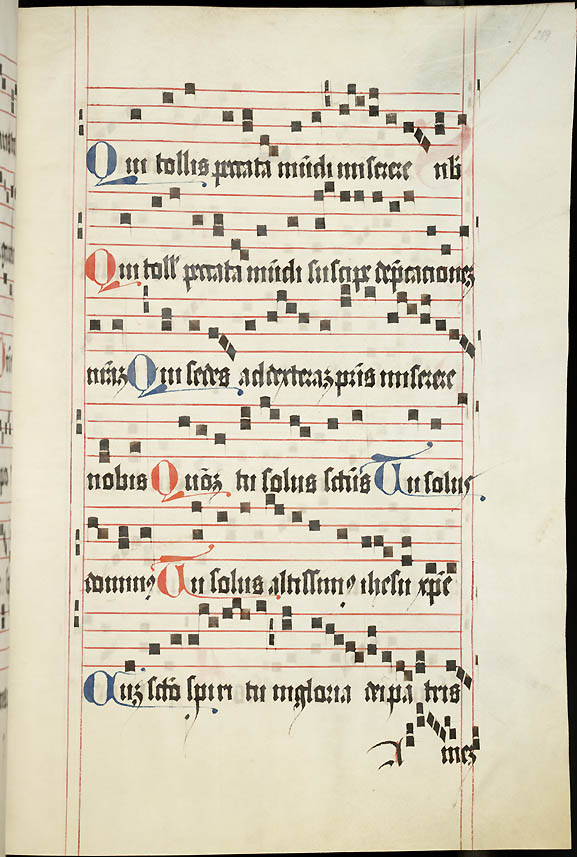 289
Qui tollis peccata mūdi miserere nb̄
Qui toll' peccata mūdi suscipe dep̄cacionez
nrāz Qui sedes ad dexteraz pr̄is miserere
nobis Quōz tu solus sctūs Tu solus
dominꝰ Tu solus altissimꝰ ihesu xp̄e
Cuz sctō spiri tu in gloria dei pa tris
Amez